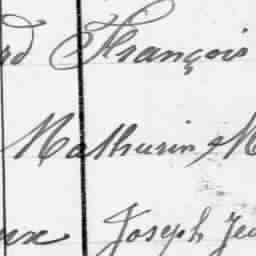 rd François
Mathurin M
ux Joseph Jea